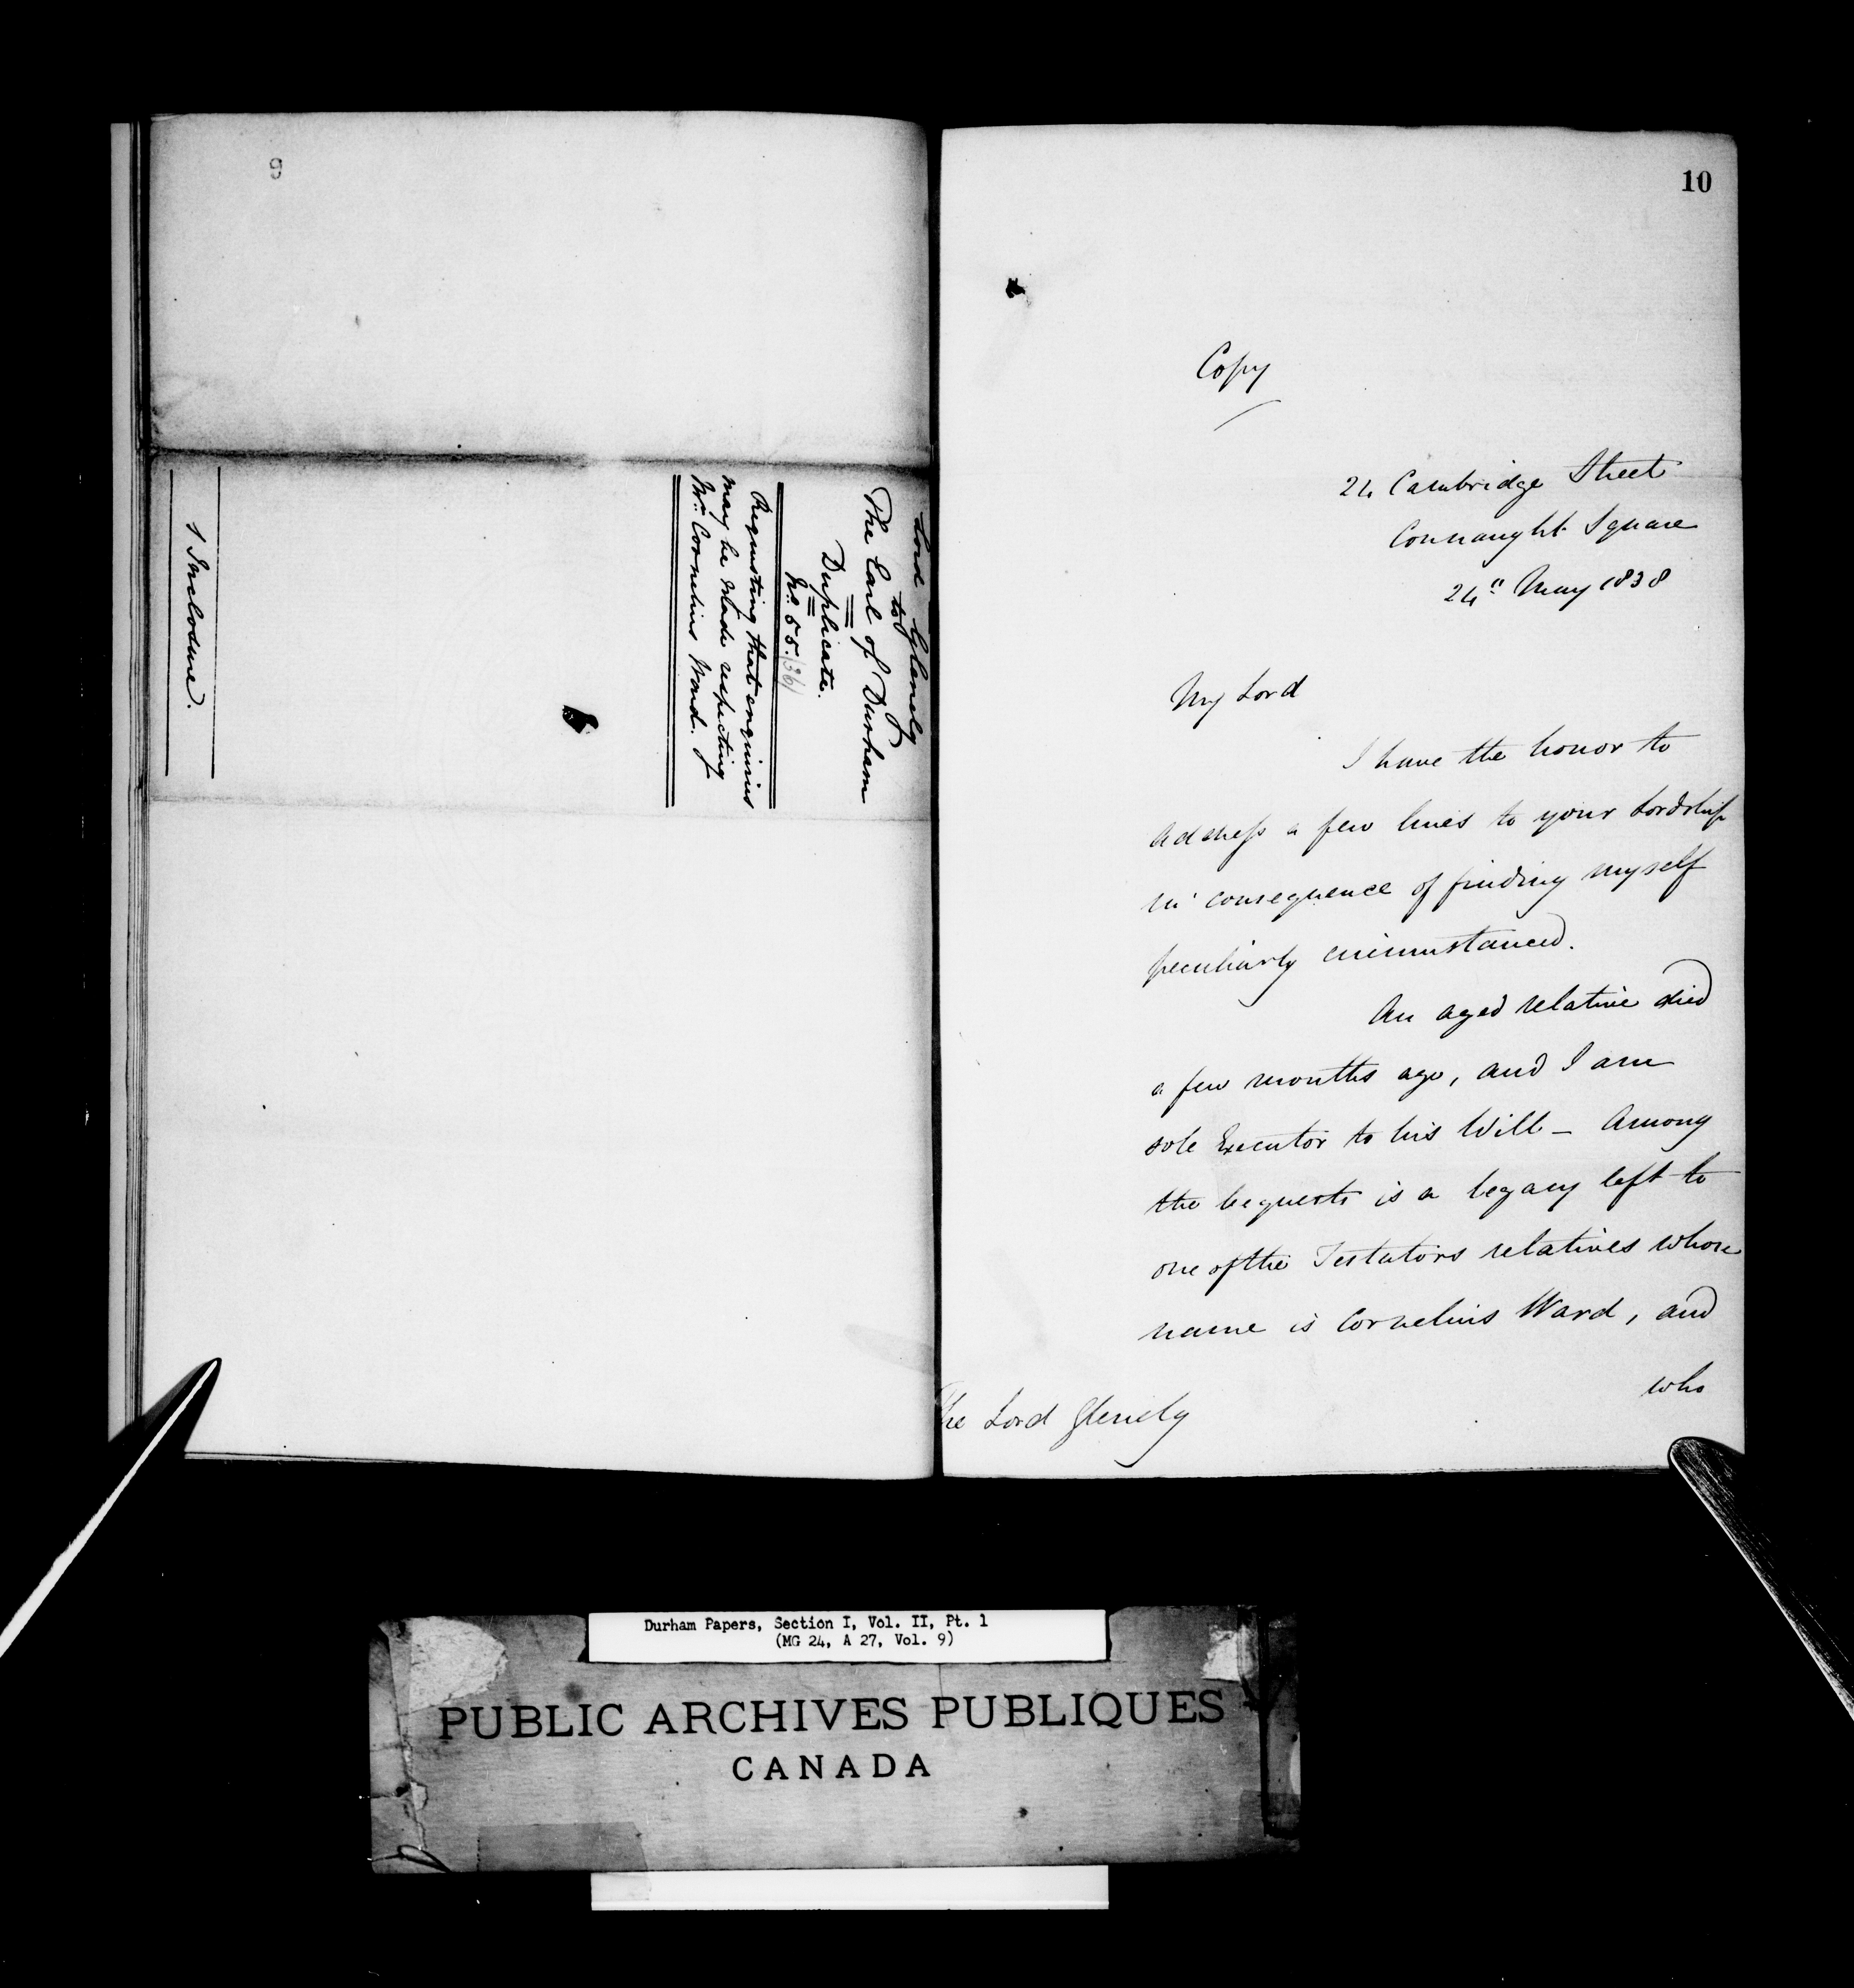 9
Lord Glenelg
to
The Earl of Durham
Duplicate.
No. 55.
Requesting that enquiries
may be made respecting
Mr. Cornelius Ward.
1 Inclosure.
10
Copy
24 Cambridge Street
Connaught Square
24th May 1838
My Lord
I have the honor to
address a few lines to your Lordship
in consequence of finding myself
peculiarly circumstanced.
An aged relative died
a few months ago, and I am
sole Executor to his Will - Among
the bequests is a legacy left to
one of the Testators relatives whose
name is Cornelius Ward, and
who
The Lord Glenelg
Durham Papers, Section I, Vol. II, Pt. 1
(MG 24, A 27, Vol. 9)
PUBLIC ARCHIVES PUBLIQUES
CANADA